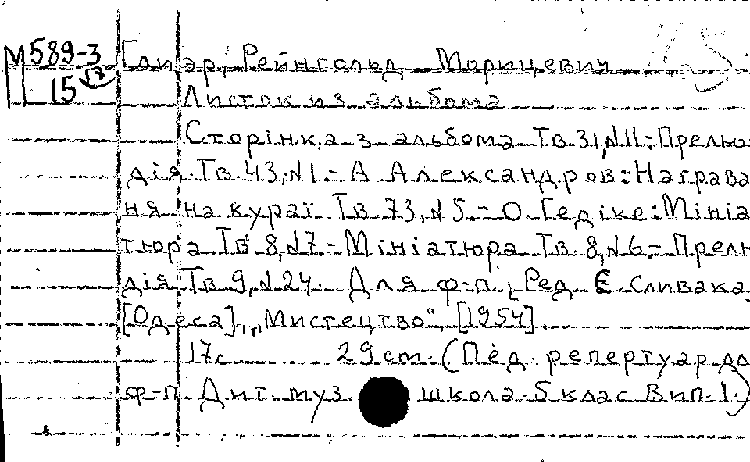 М589-3 Глиэр, Рейнгольд Морицевич
15
Листок из альбома
Сторінка з альбома Тв 31, №11: Прелю-
дія Тв 43, №1.- А Александров: Награва
ня на кураї Тв 73, №5.- О Гедіке: Мініа
тюра Тв 8, №7 - Мініатюра Тв 8, №6.- Прелю
дія Тв 9, №24 Для ф-п, Ред Є Сливака,
[Одеса], "Мистецтво", [1954]
17с 29 cm. (Пед репертуар дл
ф-п Дит муз школа 5 клас Вип. 1)